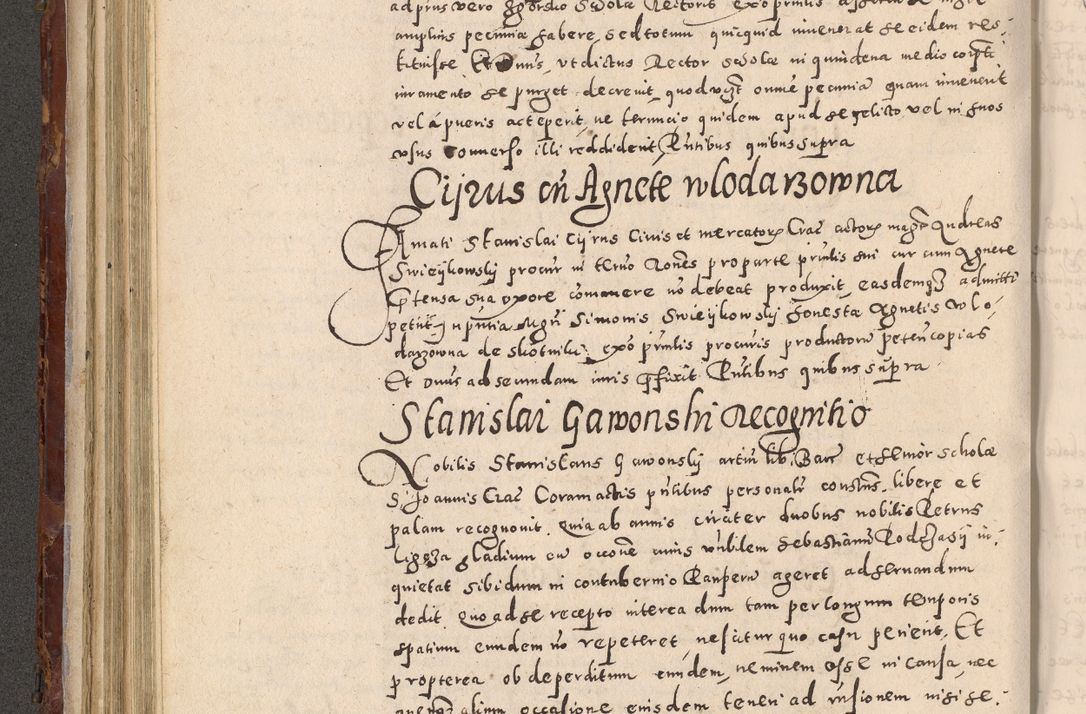 ad prius vero scholæ Rectoris
amplius pecuniæ habere, sed totum quicquid invenerat se eidem res-
tituisse Et Dnus, vt dictus Rector scholæ in quindena medio corpti
iuramento se purget decrevit, quod vigt omne pecuniã quam invenerit
vel á pueris acceperit, ne teruncio quidem apud se relicto vel in suos
vsus converso illi reddiderit, Pntibus quibus supra
Cijrus cũ Agnete wlodarzowna
Famati Stanislai Cijrus Civis et mercatoris Crac actoris magr Andreas
Swieijkowskij procur in termo Rones pro parte prinlis sui cur cum Agnete
prtensa sua vxore comouere nõ debeat produxit, easdemq3 admitti
petiit, in pntia Magri Simonis Swieijkowskij honestæ Agnetis wlo-
darzowna de skotniki, exo prinlis procuris productorũ peteñ copias
Et Dnus ad secundam iuris prfixit Pntibus quibus supra
Stanislai Gawonski Recognitio
Nobilis Stanislaus Gawonskij artiũ lib. Bacc et senior scholæ
S. Joannis Crac Coram actis pntibus personalr constns, libere et
palam recognovit. Quia ab annis circiter duobus nobilis Petrus
Ligęza gladium cũ occone cuius nobilem Sebastianũ Rodczasij in-
quietat sibi dum in contubernio Pauperũ ageret ad seruandum
dedit, quo ad se recepto interea dum tam per longum temporis
spatium eundem nõ repeteret, nescitur quo casu periert. Et
propterea ob deperditum eundem, neminem esse in causa, nec
alium occasione eiusdem teneri ad nisi se-